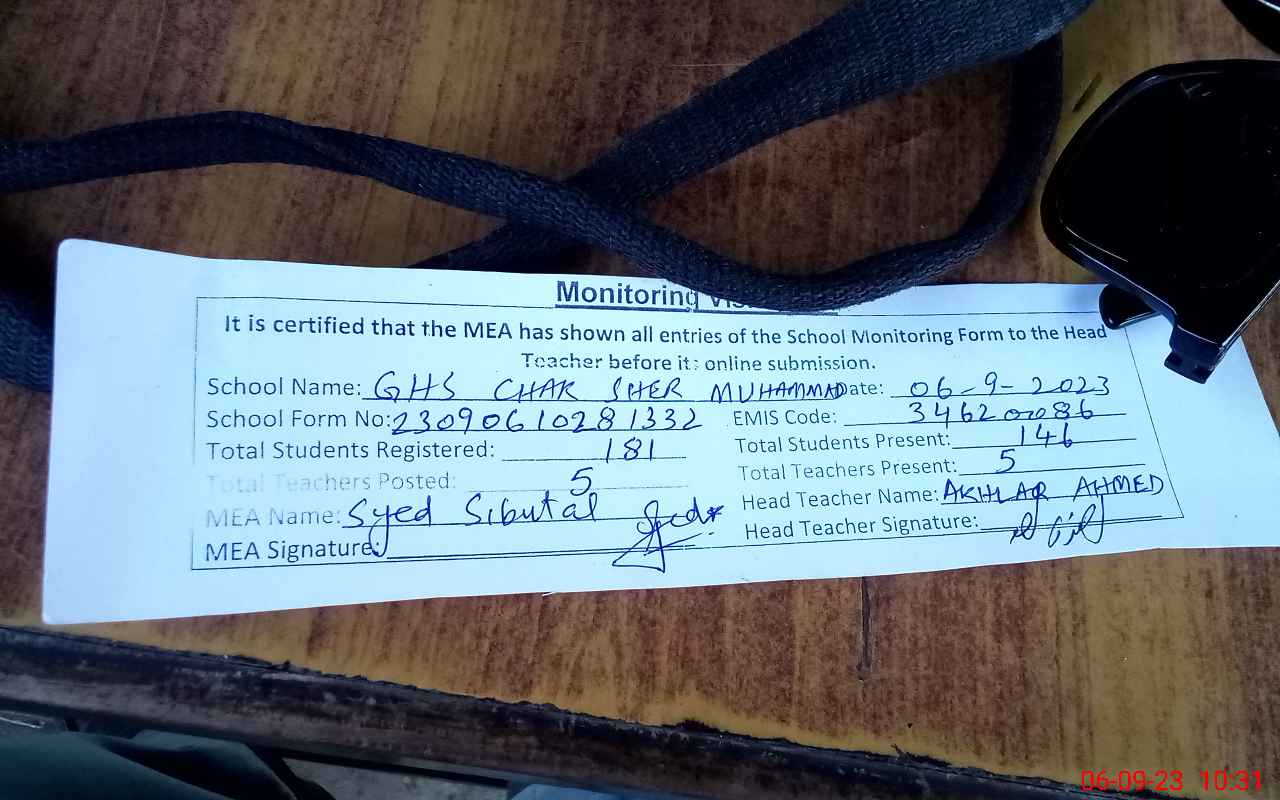 Monitoring
It is certified that the MEA has shown all entries of the School Monitoring Form to the Head
Teacher before its online submission.
School Name: GHS CHAK SHER MUHAMMAD Date: 06-9-2023
School Form No: 23090610281332 EMIS Code: 34620086
Total Students Registered: 181 Total Students Present: 146
Total Teachers Posted: 5 Total Teachers Present: 5
MEA Name: Syed Sibutal Head Teacher Name: AKHLAQ AHMED
MEA Signature: Head Teacher Signature:
06-09-23 10:31